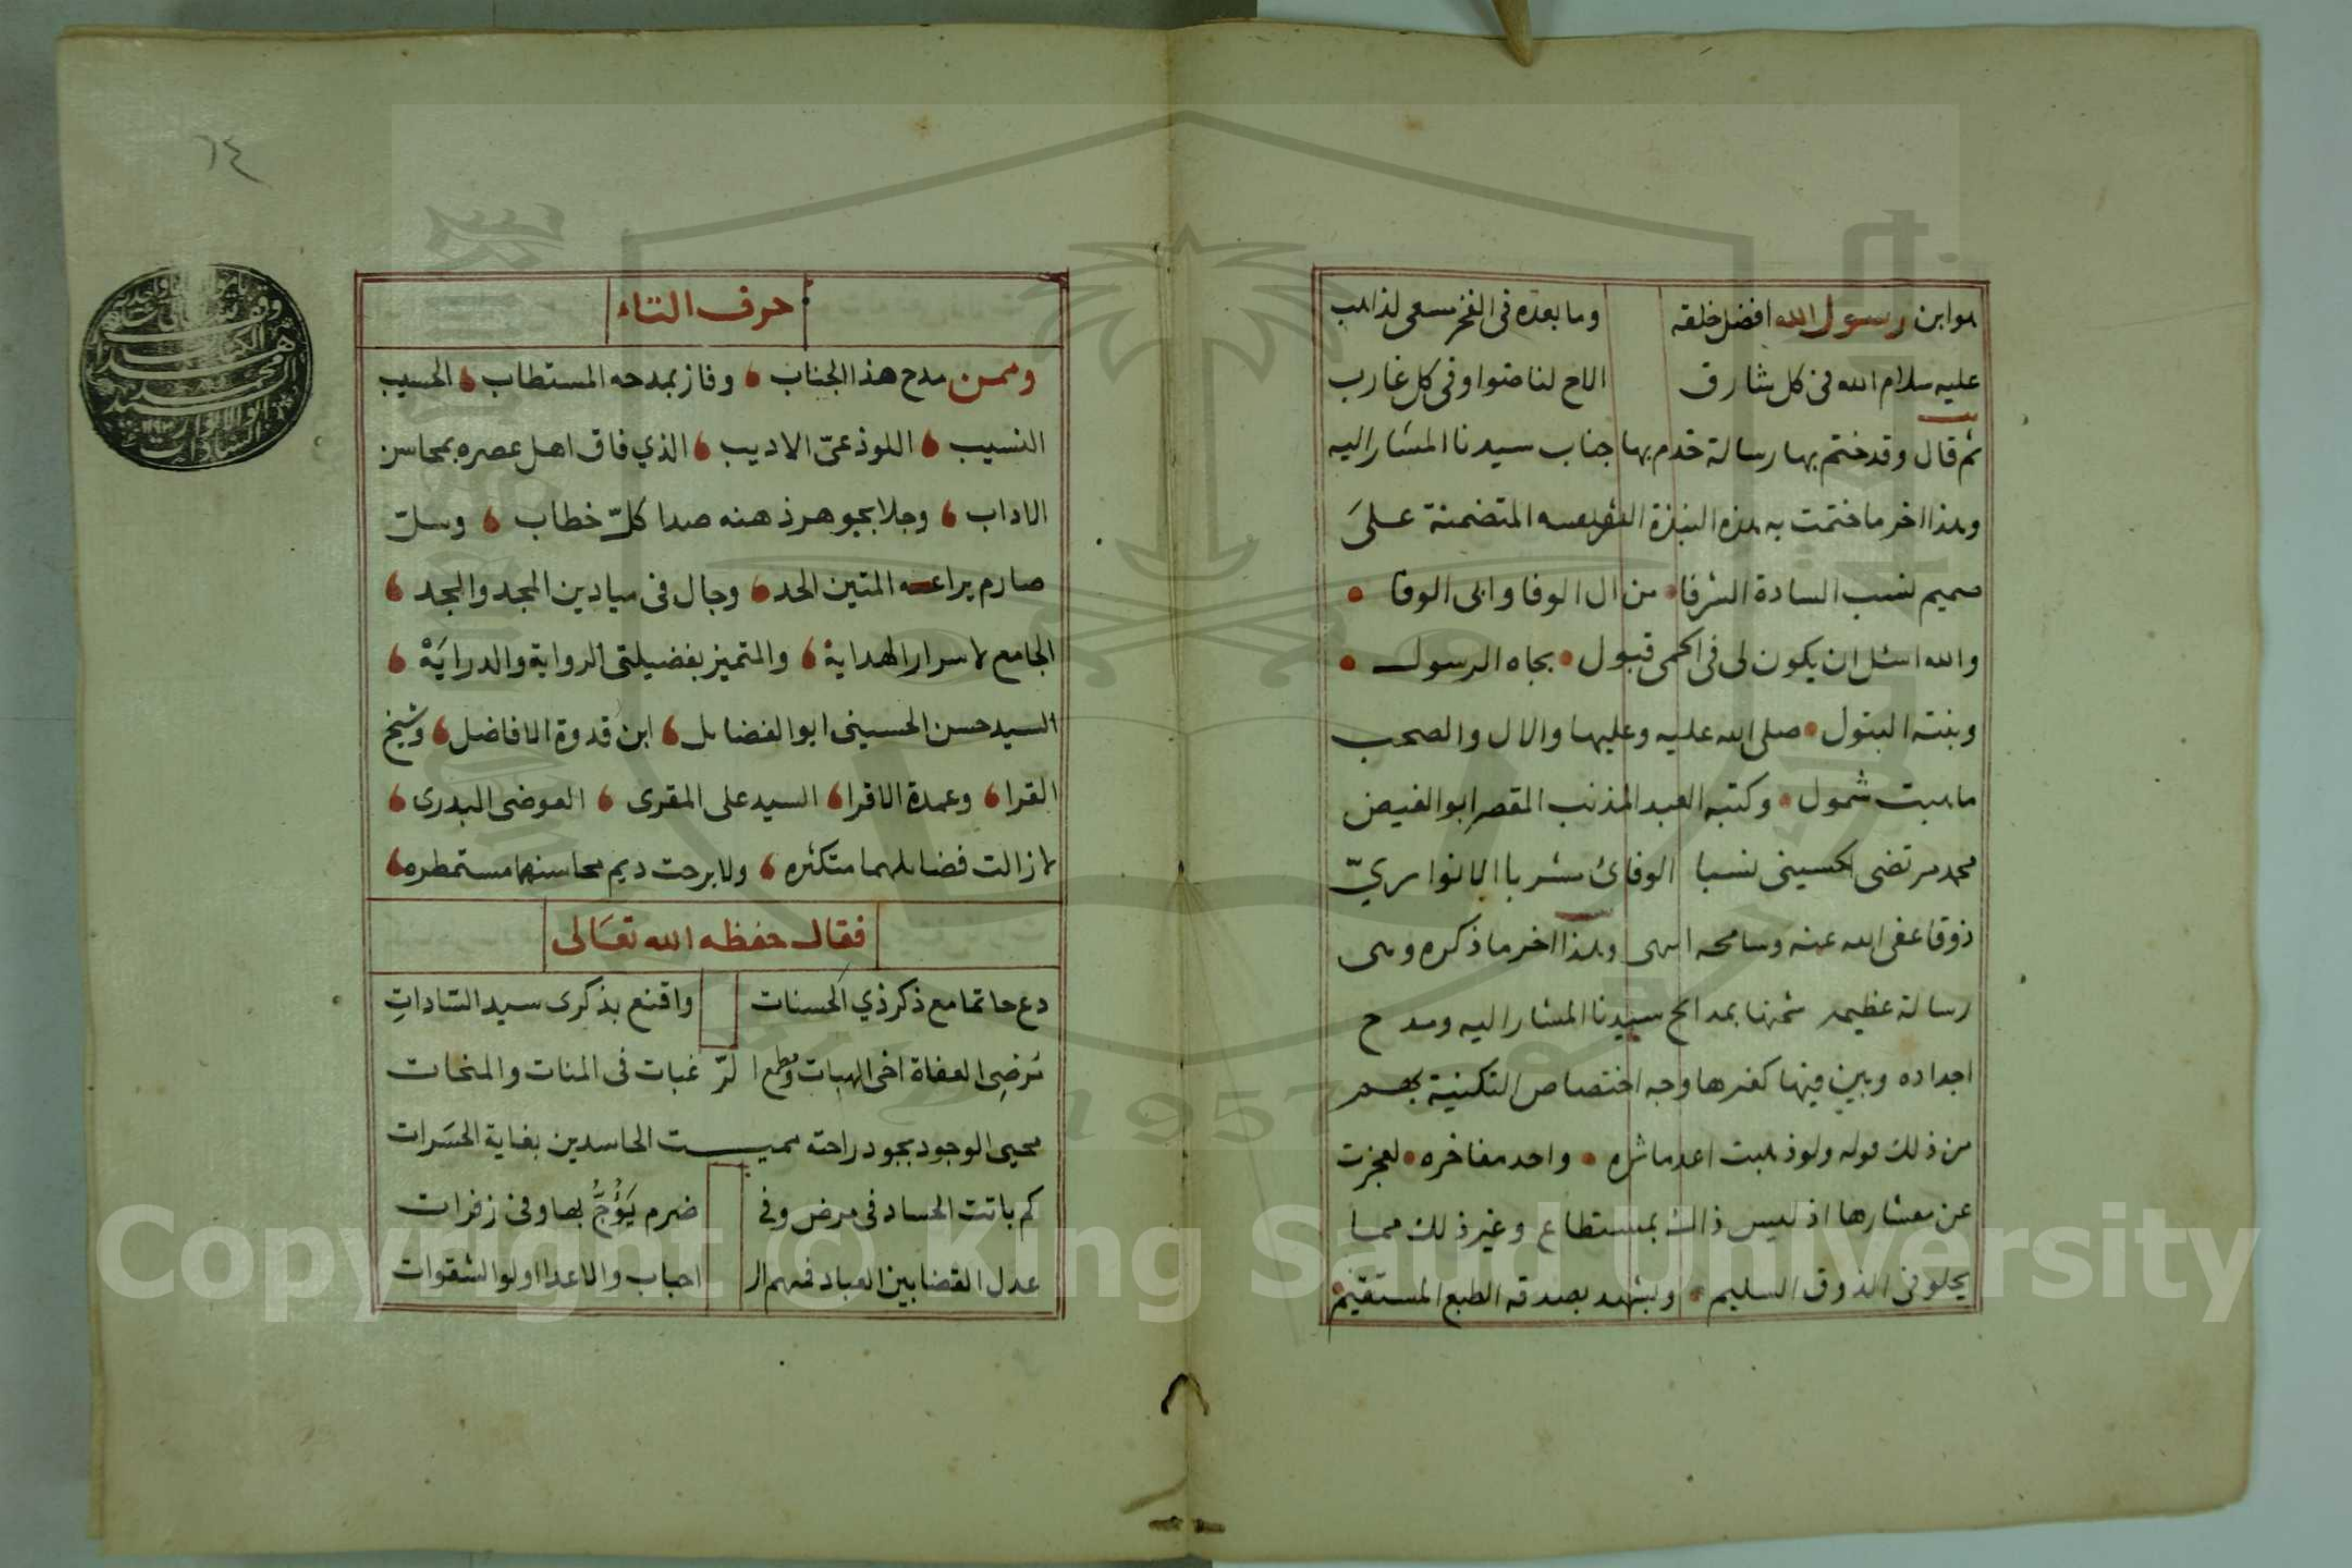 هو ابن رسول الله افضل خلقه وما بعده في الفخر مسعى لذاهب
عليه سلام الله في كل شارق الاح لنا ضوا وفي كل غارب
ثم قال وقد ختم بها رسالة خدم بها جناب سيدنا المشار اليه
وهذا اخر ما ختمت به هذه النبذة المتضمنة على
صميم نسب السادة الشرفا من ال الوفا وابى الوفا
والله اسئل ان يكون لى فى الحمى قبول بجاه الرسول
وبنته البتول صلى الله عليه وعليها والال والصحب
ما هبت شمول وكتبه العبد المذنب المقصر ابو الفيض
محمد مرتضى الحسينى نسبا الوفائ مشربا الانواريّ
ذوقا عفى الله عنه وسامحه انتهى وهذا اخر ما ذكره وهى
رسالة عظيمه سيدنا المشار اليه ومدح
اجداده وبين فيها كغيرها وجه اختصاص التكنية بهم
من ذلك قوله ولو ذهبت اعد ماثره واحد مفاخره لعجزت
عن معشارها اذ ليس ذاك بمستطاع وغير ذلك مما
يحلو فى الذوق السليم ويشهد بصدقه الطبع المستقيم
٦٤
حرف التاء
وممن مدح هذا الجناب وفاز بمدحه المستطاب الحسيب
النسيب اللوذعىّ الاديب الذي فاق اهل عصره بمحاسن
الاداب وجلا بجوهر ذهنه صدا كلّ خطاب وسلّ
صارم يراعه المتين الحد وجال فى ميادين المجد والجد
الجامع لاسرار الهداية والمتميز بفضيلتى الرواية والدراية
السيد حسن الحسينى ابو الفضايل ابن قدوة الافاضل وشيخ
القرا وعمدة الاقرا السيد على المقرى العوضى البدرى
لا زالت فضايلهما متكثره ولا برحت ديم محاسنهما مستمطره
فقال حفظه الله تعالى
دع حاتما مع ذكر ذي الحسنات واقنع بذكرى سيد السّاداتِ
مُرضِى العفاة اخى الهبات ومطمع ا لرّغبات فى المنات والمنحات
محيى الوجود بجود راحته مميت الحاسدين بغاية الحسَرات
كم باتت الحساد فى مرض وفي ضرم يَؤُجُّ بها وفى زفرات
عدل القضا بين العباد فمنهم ال احباب والاعدا اولو الشقوات
Copyright © King Saud University
1957